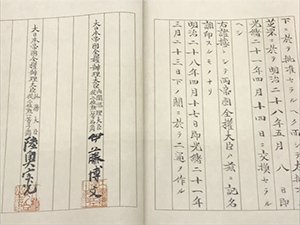 下ニ於テ批准セラルヘク而シテ右批准ハ
芝罘ニ於テ明治二十八年五月八日即
光緒二十一年四月十四日ニ交換セラル
ヘシ
右證據トシテ兩帝國全權大臣ハ茲ニ記名
調印スルモノナリ
明治二十八年四月十七日即光緒二十一年
三月二十三日下ノ關ニ於テ二通ヲ作ル
大日本帝國全權辦理大臣
伊藤博文
大日本帝國全權辦理大臣
陸奥宗光